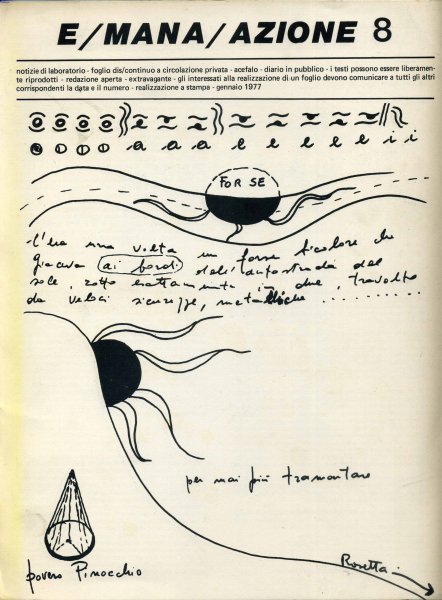 E/MANA/AZIONE 8
notizie di laboratorio - foglio dis/continuo a circolazione privata - acefalo - diario in pubblico - i testi possono essere liberamen-
te riprodotti - redazione aperta - extravagante - gli interessati alla realizzazione di un foglio devono comunicare a tutti gli altri
corrispondenti la data e il numero - realizzazione a stampa - gennaio 1977
a a a e e e e e i i
FOR SE
C'era una volta un forse tricolore che
giaceva ai bordi dell'autostrada del
sole, rotto esattamente in due, travolto
da veloci sicurezze, metalliche ..........
per mai più tramontare
povero Pinocchio
Rosetta